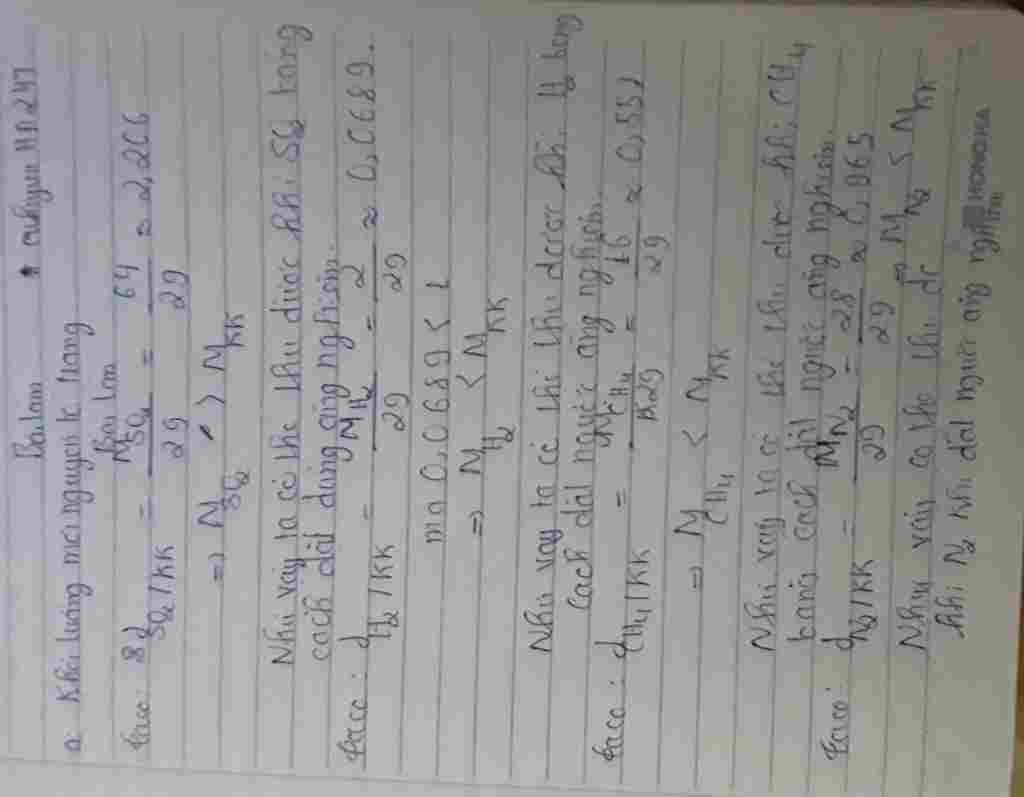 Bài làm
a Khối lượng mới nguyên tc trong
Bài làm
taco: d SO₂/KK = M SO₂ / 29 = 64 / 29 ≈ 2,206
=> M SO₂ > M KK
Như vậy ta có thể thu được khí SO₂ bằng
cách đặt đứng ống nghiệm.
taco: d H₂/KK = M H₂ / 29 = 2 / 29 ≈ 0,0689.
mà 0,0689 < 1
=> M H₂ < M KK
Như vậy ta có thể thu được khí H₂ bằng
cách đặt ngược ống nghiệm.
taco: d CH₄/KK = M CH₄ / 29 = 16 / 29 ≈ 0,551
=> M CH₄ < M KK
Như vậy ta có thể thu được khí CH₄
bằng cách đặt ngược ống nghiệm.
taco: d N₂/KK = M N₂ / 29 = 28 / 29 ≈ 0,965
=> M N₂ < M KK
Như vậy có thể thu đc
khí N₂ khi đặt ngược ống